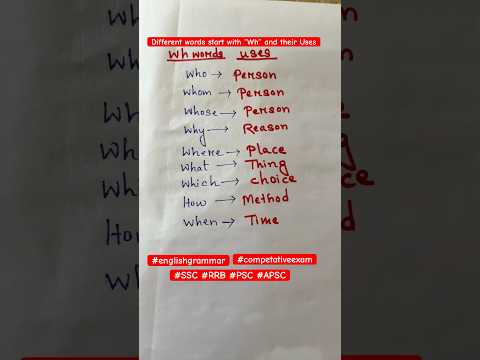 Different words start with "Wh" and their Uses
Wh words uses
Who → Person
Whom → Person
Whose → Person
Why → Reason
Where → Place
What → Thing
Which → choice
How → Method
When → Time
#englishgrammar #competativeexam
#SSC #RRB #PSC #APSC